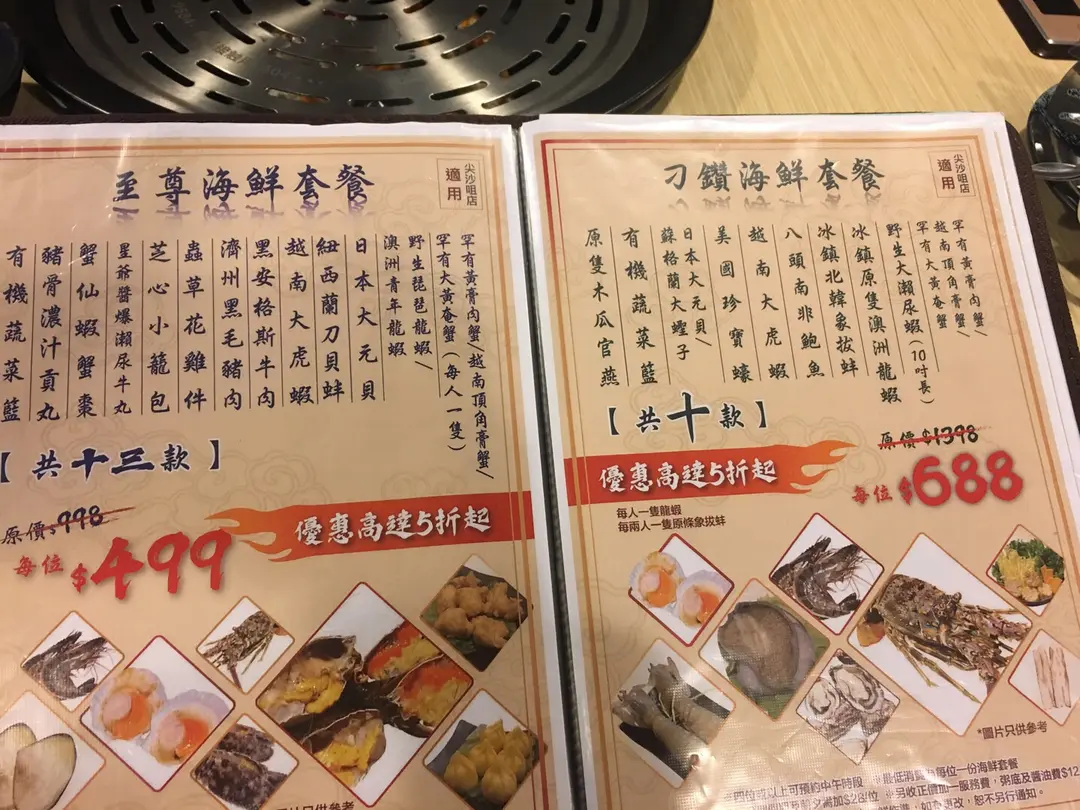 至尊海鮮套餐
尖沙咀店
適用
罕有黃膏肉蟹/越南頂角膏蟹/
罕有大黃奄蟹(每人一隻)
野生琵琶龍蝦/
澳洲青年龍蝦
日本大元貝
紐西蘭刀貝蚌
越南大虎蝦
黑安格斯牛肉
濟州黑毛豬肉
蟲草花雞件
芝心小籠包
星爺醬爆瀨尿牛丸
蟹仙蝦蟹棗
豬骨濃汁貢丸
有機蔬菜籃
【共十三款】
原價$998
每位$499
優惠高達5折起
刁鑽海鮮套餐
尖沙咀店
適用
罕有黃膏肉蟹/
越南頂角膏蟹/
罕有大黃奄蟹
野生大瀨尿蝦(10吋長)
冰鎮原隻澳洲龍蝦
冰鎮北韓象拔蚌
八頭南非鮑魚
越南大虎蝦
美國珍寶蠔
日本大元貝/
蘇格蘭大蟶子
有機蔬菜籃
原隻木瓜官燕
【共十款】
原價$1398
每位$688
優惠高達5折起
每人一隻龍蝦
每兩人一隻原條象拔蚌
*圖片只供參考
圖片只供參考
四位或以上可預約中午時段
每位一份海鮮套餐
※另收正價加一服務費,粥底及醬油費$12
恕不另行通知。